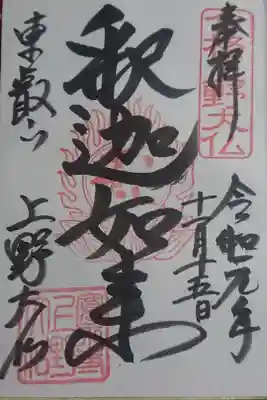 奉拝
上野大仏
令和元年
十一月十五日
釈迦如来
東叡山
上野大仏